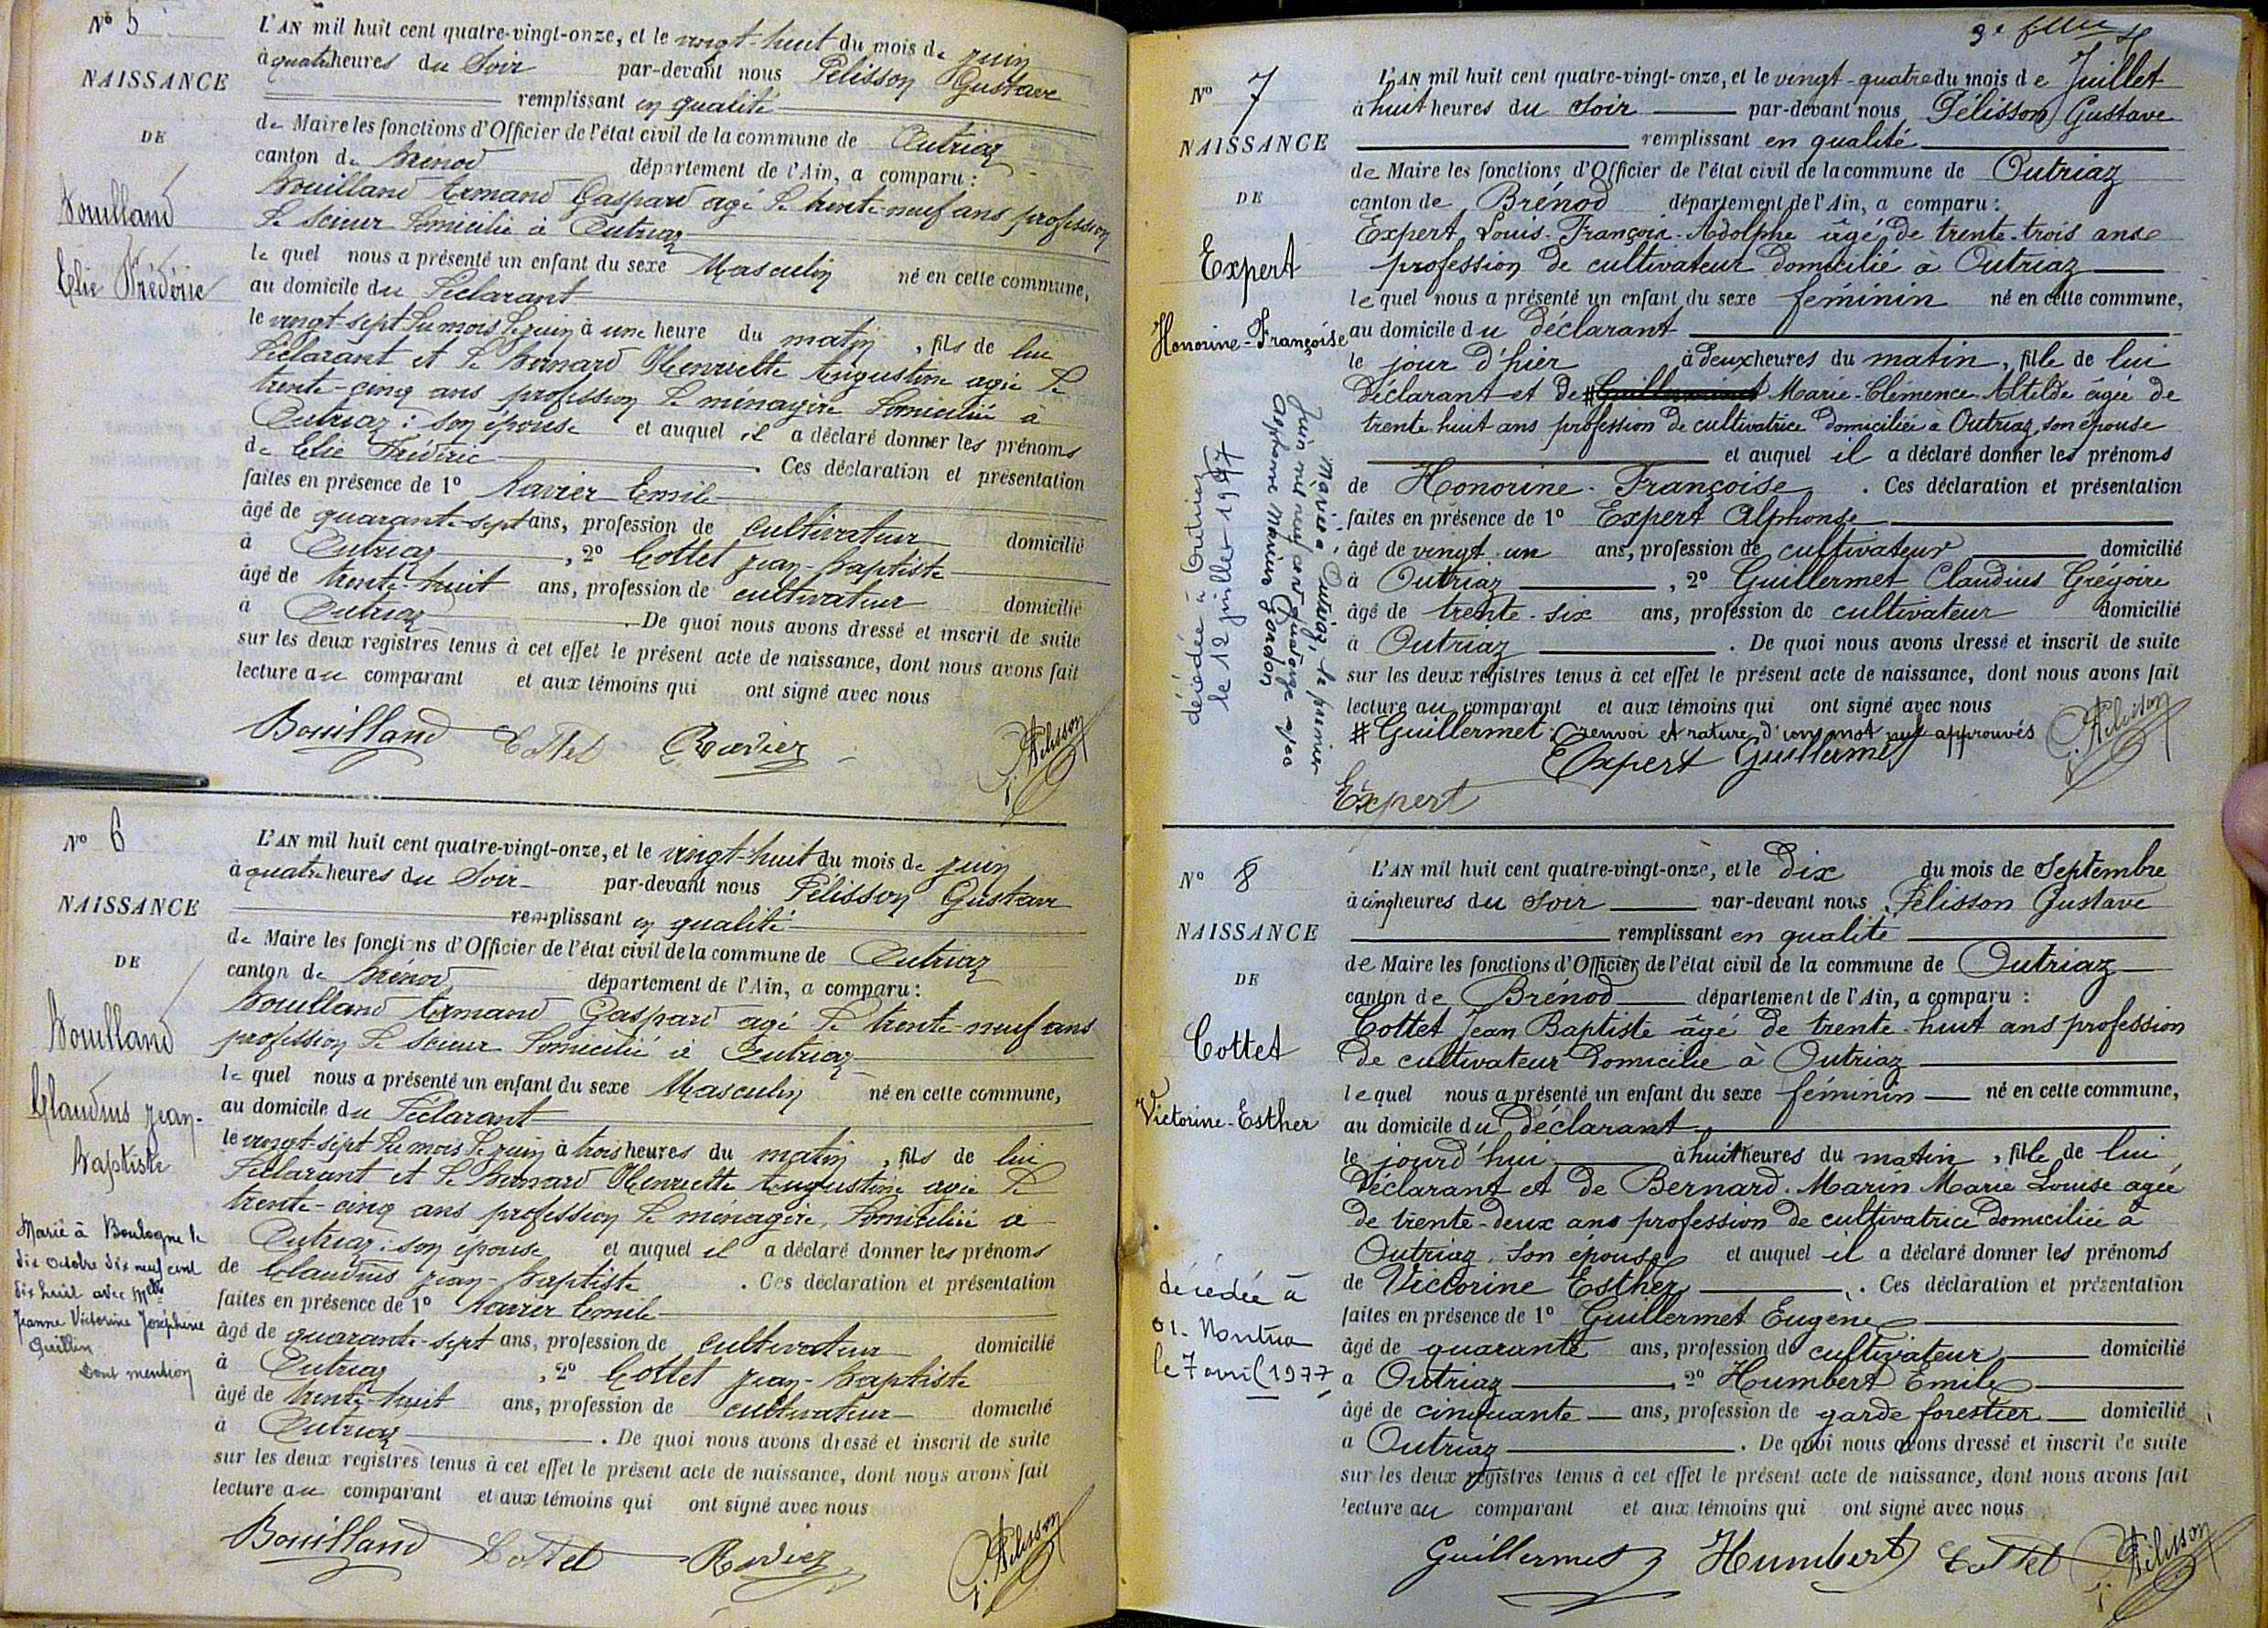 Nº 5
NAISSANCE
DE
Bouilland
Elie Frédéric
L'AN mil huit cent quatre-vingt-onze, et le vingt-huit du mois de juin
à quatre heures du Soir par-devant nous Pélisson Gustave
remplissant en qualité
de Maire les fonctions d'Officier de l'état civil de la commune de Outriaz
canton de Brénod département de l'Ain, a comparu :
Bouilland Armand Gaspard agé de trente-neuf ans profession
de scieur domicilié à Outriaz
le quel nous a présenté un enfant du sexe Masculin né en cette commune,
au domicile du déclarant
le vingt-sept du mois de juin à une heure du matin, fils de lui
déclarant et de Bernard Henriette Augustine agée de
trente-cinq ans profession de ménagère domiciliée à
Outriaz : son épouse et auquel il a déclaré donner les prénoms
de Elie Frédéric . Ces déclaration et présentation
faites en présence de 1º Ravier Emile
âgé de quarante-sept ans, profession de cultivateur domicilié
à Outriaz , 2º Cottet jean-baptiste
âgé de trente-huit ans, profession de cultivateur domicilié
à Outriaz . De quoi nous avons dressé et inscrit de suite
sur les deux registres tenus à cet effet le présent acte de naissance, dont nous avons fait
lecture au comparant et aux témoins qui ont signé avec nous
Bouilland Cottet Ravier G. Pélisson
Nº 6
NAISSANCE
DE
Bouilland
Claudius jean-
baptiste
Marié à Boulogne le
dix octobre dix neuf cent
dix huit avec Melle
Jeanne Victorine Joséphine
Quillien
Dont mention
L'AN mil huit cent quatre-vingt-onze, et le vingt-huit du mois de juin
à quatre heures du Soir par-devant nous Pélisson Gustave
remplissant en qualité
de Maire les fonctions d'Officier de l'état civil de la commune de Outriaz
canton de Brénod département de l'Ain, a comparu :
Bouilland Armand Gaspard agé de trente-neuf ans
profession de scieur domicilié à Outriaz
le quel nous a présenté un enfant du sexe Masculin né en cette commune,
au domicile du déclarant
le vingt-sept du mois de juin à trois heures du matin, fils de lui
déclarant et de Bernard Henriette Augustine agée de
trente-cinq ans profession de ménagère, domiciliée à
Outriaz : son épouse et auquel il a déclaré donner les prénoms
de Claudius jean-baptiste . Ces déclaration et présentation
faites en présence de 1º Ravier Emile
âgé de quarante-sept ans, profession de cultivateur domicilié
à Outriaz , 2º Cottet jean-baptiste
âgé de trente-huit ans, profession de cultivateur domicilié
à Outriaz . De quoi nous avons dressé et inscrit de suite
sur les deux registres tenus à cet effet le présent acte de naissance, dont nous avons fait
lecture au comparant et aux témoins qui ont signé avec nous
Bouilland Cottet Ravier G. Pélisson
3e
Nº 7
NAISSANCE
DE
Expert
Honorine-Françoise
Mariée à Outriaz, le premier
Juin mil neuf cent quatorze avec
Alphonse Marius Gordon
décédée à Outriaz
le 12 juillet 1977
L'AN mil huit cent quatre-vingt-onze, et le vingt-quatre du mois de Juillet
à huit heures du soir par-devant nous Pélisson Gustave
remplissant en qualité
de Maire les fonctions d'Officier de l'état civil de la commune de Outriaz
canton de Brénod département de l'Ain, a comparu :
Expert Louis-François-Adolphe âgé de trente-trois ans
profession de cultivateur domicilié à Outriaz
le quel nous a présenté un enfant du sexe féminin né en cette commune,
au domicile du déclarant
le jour d'hier à deux heures du matin, fille de lui
Déclarant et de # Marie-Clémence Altilde âgée de
trente huit ans profession de cultivatrice domiciliée à Outriaz, son épouse
et auquel il a déclaré donner les prénoms
de Honorine-Françoise . Ces déclaration et présentation
faites en présence de 1º Expert Alphonse
âgé de vingt un ans, profession de cultivateur domicilié
à Outriaz , 2º Guillermet Claudius Grégoire
âgé de trente-six ans, profession de cultivateur domicilié
à Outriaz . De quoi nous avons dressé et inscrit de suite
sur les deux registres tenus à cet effet le présent acte de naissance, dont nous avons fait
lecture au comparant et aux témoins qui ont signé avec nous
# Guillermet : renvoi et rature d'un mot nul approuvés
Expert Guillermet G. Pélisson
Expert
Nº 8
NAISSANCE
DE
Cottet
Victorine-Esther
décédée à
01. Nantua
le 7 avril 1977
L'AN mil huit cent quatre-vingt-onze, et le Dix du mois de Septembre
à cinq heures du soir par-devant nous Pélisson Gustave
remplissant en qualité
de Maire les fonctions d'Officier de l'état civil de la commune de Outriaz
canton de Brénod département de l'Ain, a comparu :
Cottet Jean Baptiste âgé de trente-huit ans profession
de cultivateur domicilié à Outriaz
le quel nous a présenté un enfant du sexe féminin né en cette commune,
au domicile du déclarant
le jourd'hui à huit heures du matin, fille de lui
Déclarant et de Bernard. Marin Marie Louise agée
de trente-deux ans profession de cultivatrice domiciliée à
Outriaz, son épouse et auquel il a déclaré donner les prénoms
de Victorine Esther . Ces déclaration et présentation
faites en présence de 1º Guillermet Eugène
âgé de quarante ans, profession de cultivateur domicilié
à Outriaz , 2º Humbert Emile
âgé de cinquante ans, profession de garde forestier domicilié
à Outriaz . De quoi nous avons dressé et inscrit de suite
sur les deux registres tenus à cet effet le présent acte de naissance, dont nous avons fait
lecture au comparant et aux témoins qui ont signé avec nous
Guillermet Humbert Cottet G. Pélisson